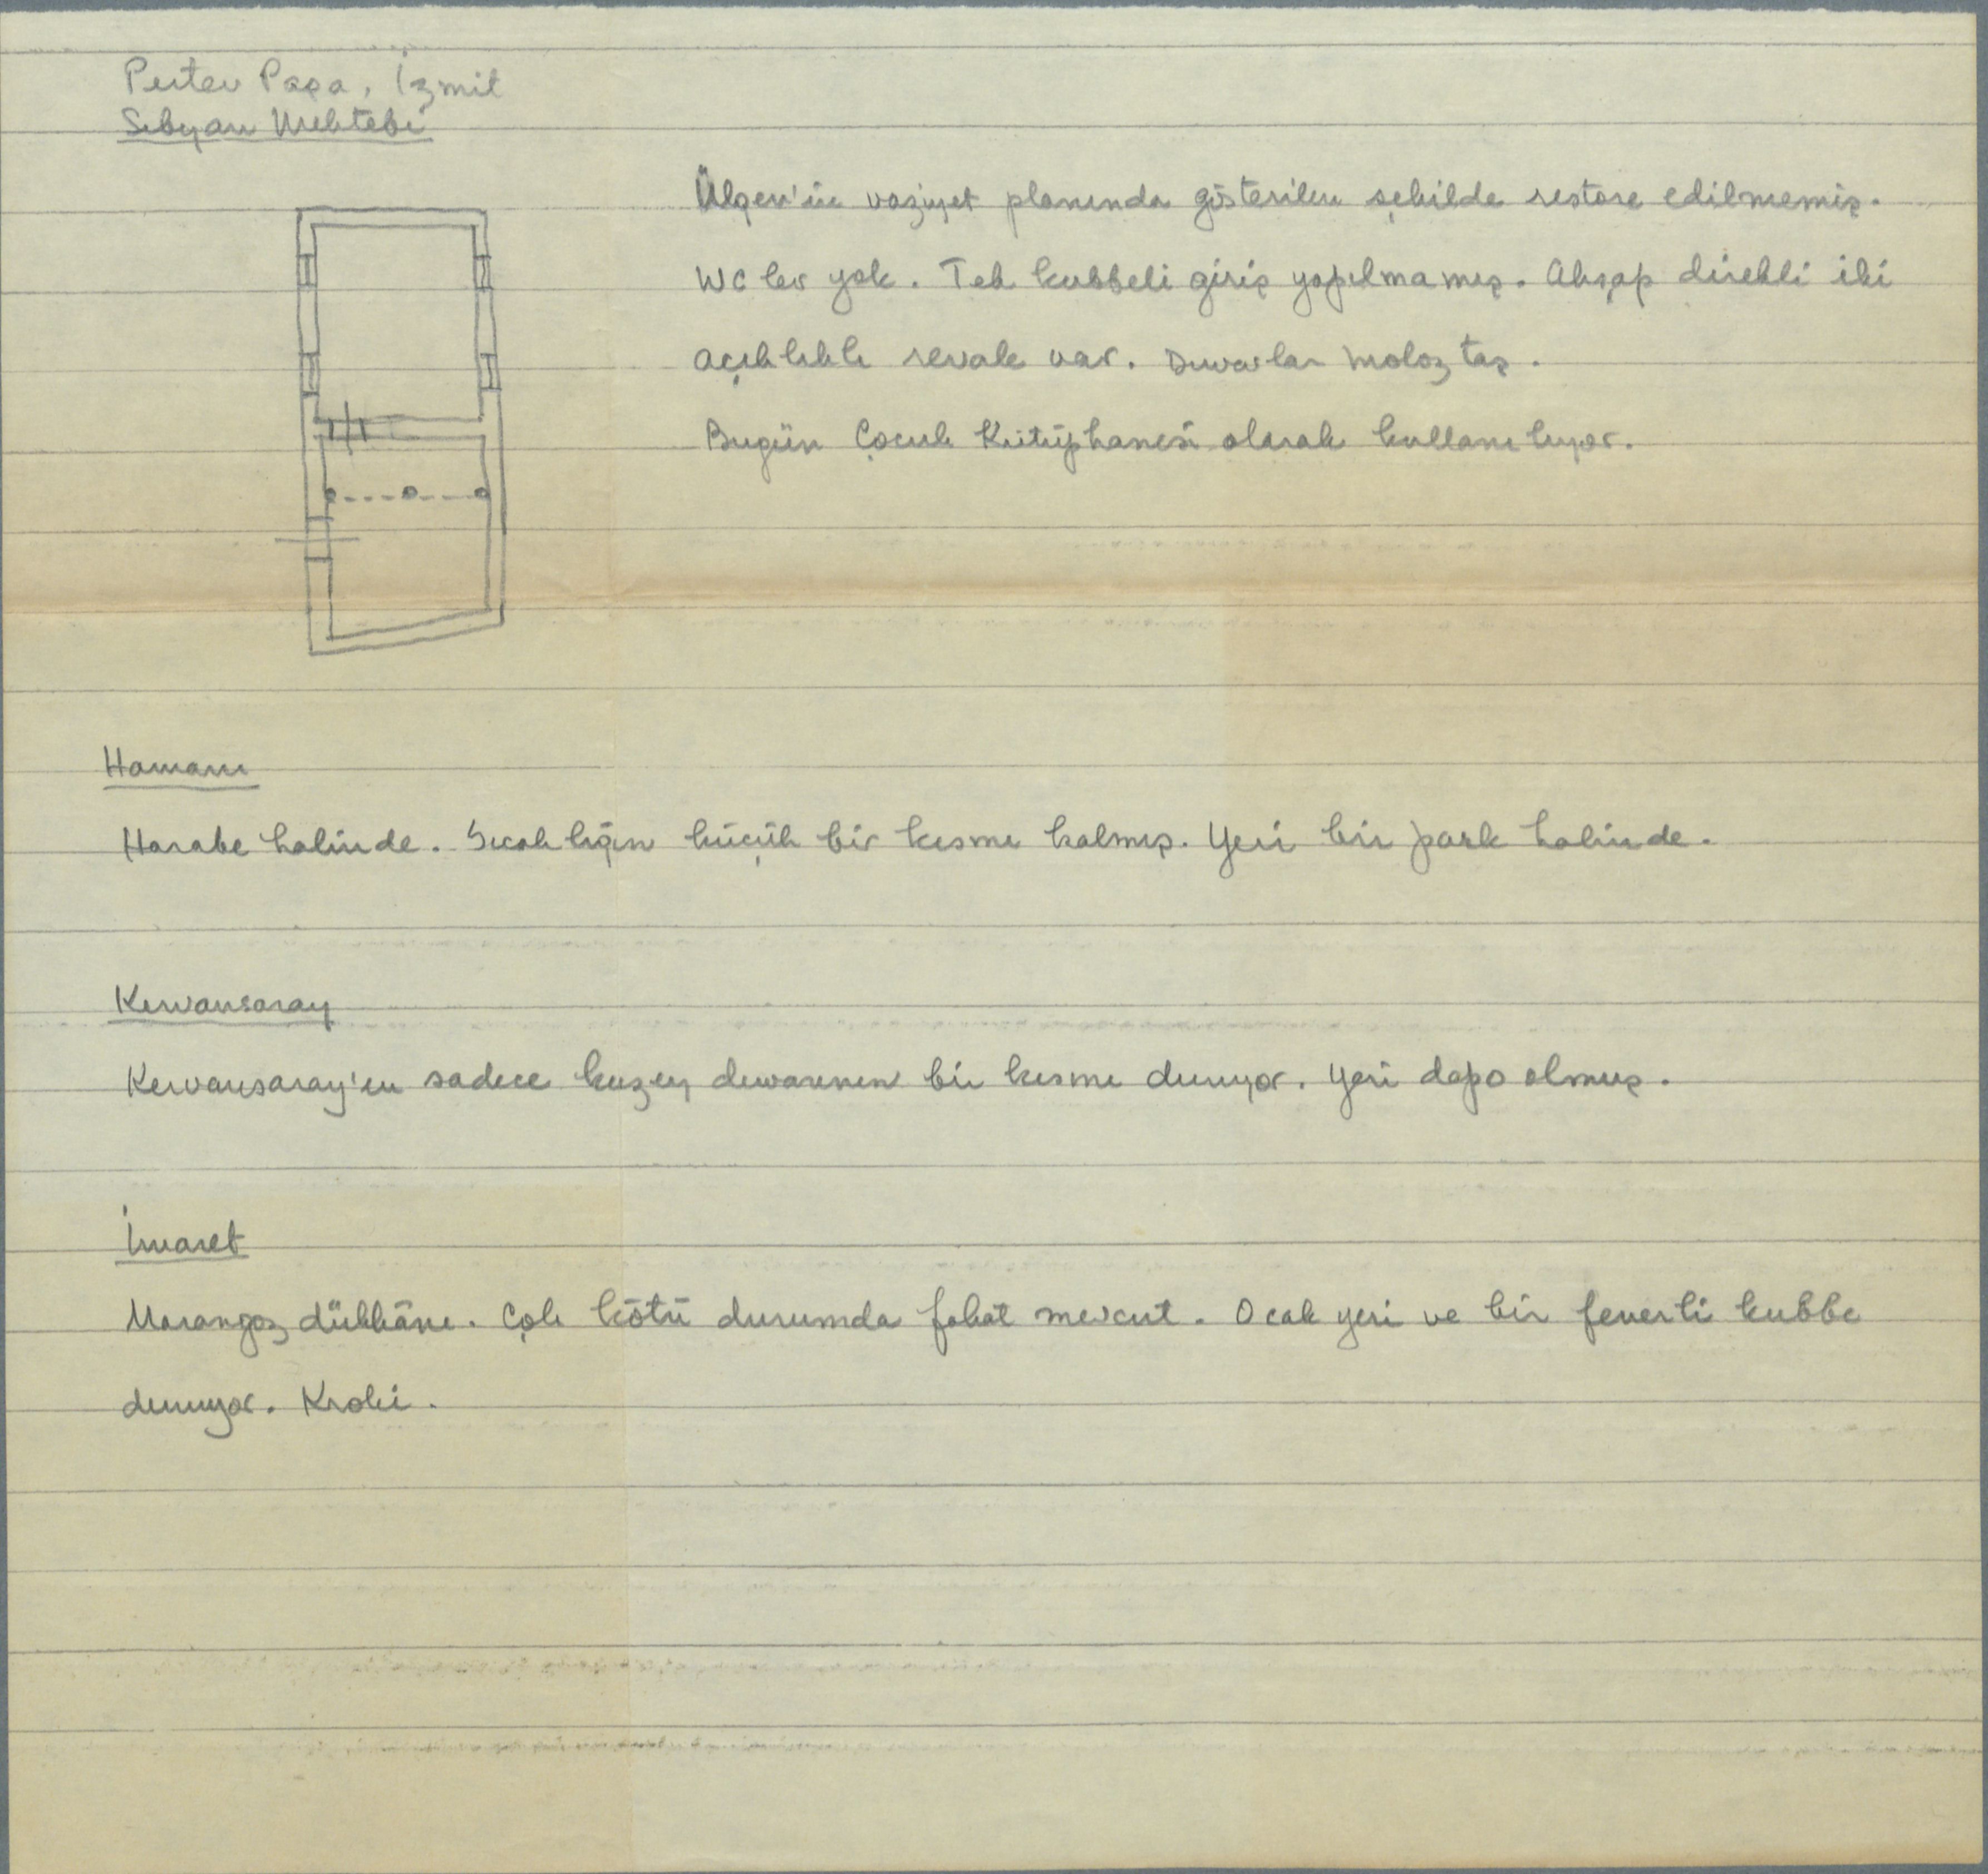 Pertev Paşa, İzmit
Sıbyan Mektebi
Ülgen'in vaziyet planında gösterilen şekilde restore edilmemiş.
WC ler yok. Tek kubbeli giriş yapılmamış. Ahşap direkli iki
açıklıklı revak var. Duvarlar moloz taş.
Bugün Çocuk Kütüphanesi olarak kullanılıyor.
Hamam
Harabe halinde. Sıcaklığın küçük bir kısmı kalmış. Yeri bir park halinde.
Kervansaray
Kervansaray'ın sadece kuzey duvarının bir kısmı duruyor. Yeri depo olmuş.
İmaret
Marangoz dükkânı. Çok kötü durumda fakat mevcut. Ocak yeri ve bir fenerli kubbe
duruyor. Kroki.